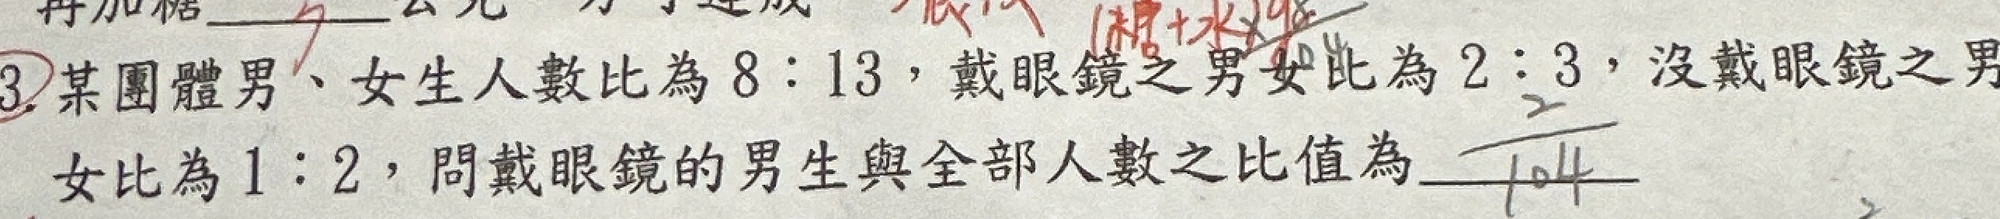 再加糖______公克
(糖+水)
3. 某團體男、女生人數比為 8:13,戴眼鏡之男女比為 2:3,沒戴眼鏡之男
女比為 1:2,問戴眼鏡的男生與全部人數之比值為 2/104